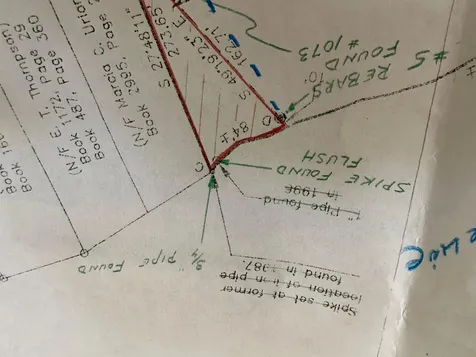 #5
REBARS
FOUND
#1073
10'
S 49°19'23" E
162.71'
S 27°48'11"
273.65
(N/F Marcia C. Union
Book 2995, Page
(N/F E. T. Thompson)
Book 1172, Page 29
Book 487, Page 360
Book
Book
D
84'±
C
SPIKE FOUND
FLUSH
1" Pipe found
in 1996
3/4" PIPE FOUND
Spike set at former
location of iron pipe
found in 1987.